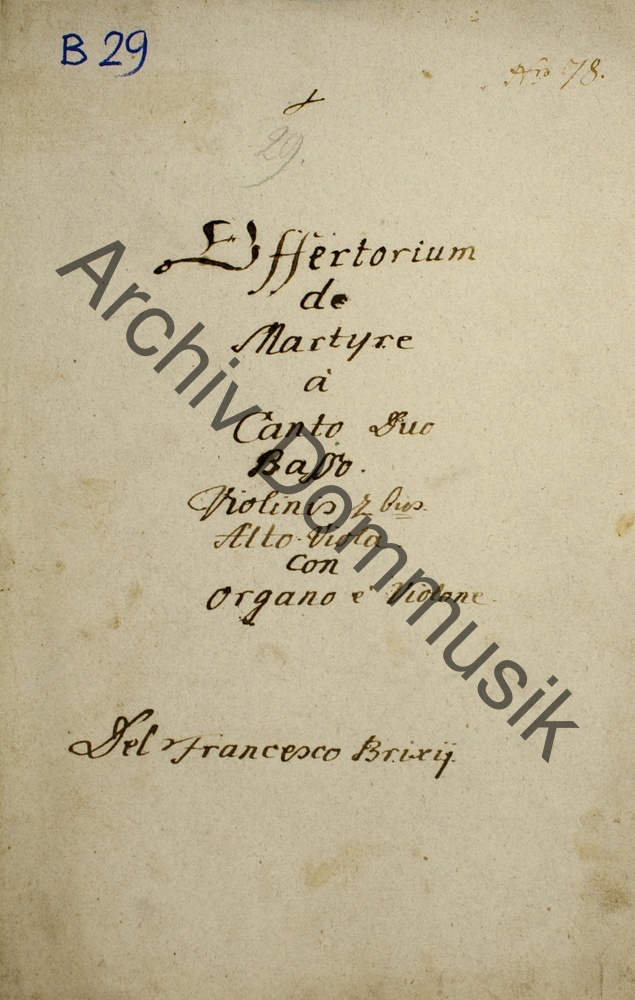 B 29
Nro 78.
29.
Offertorium
de
Martyre
à
Canto Duo
Basso.
Violinis 2 bus.
Alto Viola
Con
Organo è Violone
Del Francesco Brixij.
Archiv Dommusik